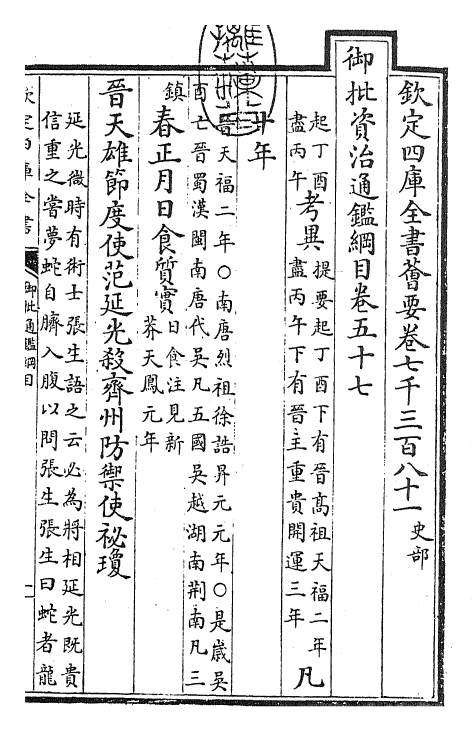 欽定四庫全書薈要卷七千三百八十一 史部
御批資治通鑑綱目卷五十七
起丁酉
盡丙午
考異
提要起丁酉下有晉高祖天福二年
盡丙午下有晉主重貴開運三年
凡
十年
酉
晉天福二年○南唐烈祖徐誥昇元元年○是歲吳
亡晉蜀漢閩南唐代吳凡五國吳越湖南荆南凡三
鎮
春正月日食質實
日食注見新
莽天鳳元年
晉天雄節度使范延光殺齊州防禦使祕瓊
延光微時有術士張生語之云必為將相延光既貴
信重之嘗夢蛇自臍入腹以問張生張生曰蛇者龍
欽定四庫全書
御批通鑑綱目
一